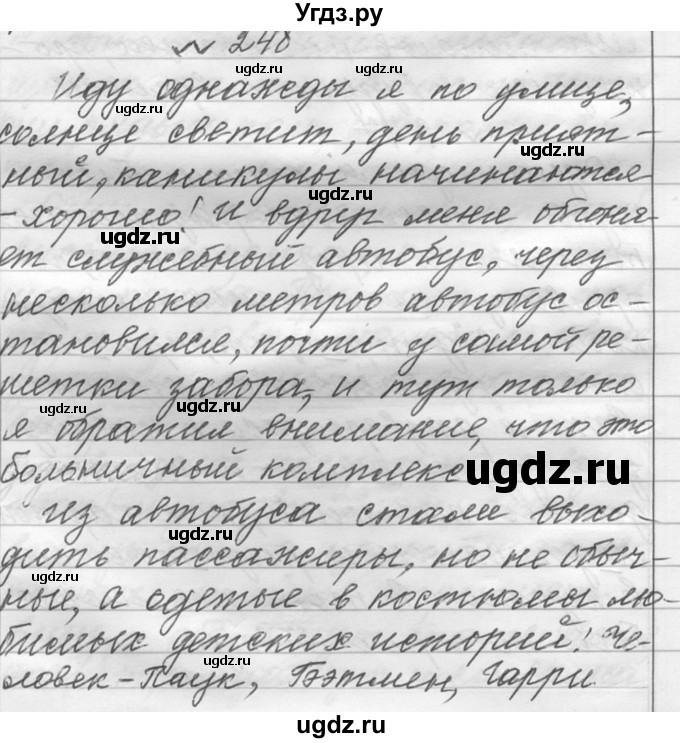 Угдз.ру
№ 248
Иду однажды я по улице,
солнце светит, день прият-
ный, каникулы начинаются
-хорошо! И вдруг меня обгоня-
ет служебный автобус, через
несколько метров автобус ос-
тановился, почти у самой ре-
шетки забора, и тут только
я обратил внимание, что это
больничный комплекс
Из автобуса стали выхо-
дить пассажиры, но не обыч-
ные, а одетые в костюмы лю-
бимых детских историй! Че-
ловек-Паук, Бэтмен, Гарри
ugdz.ru